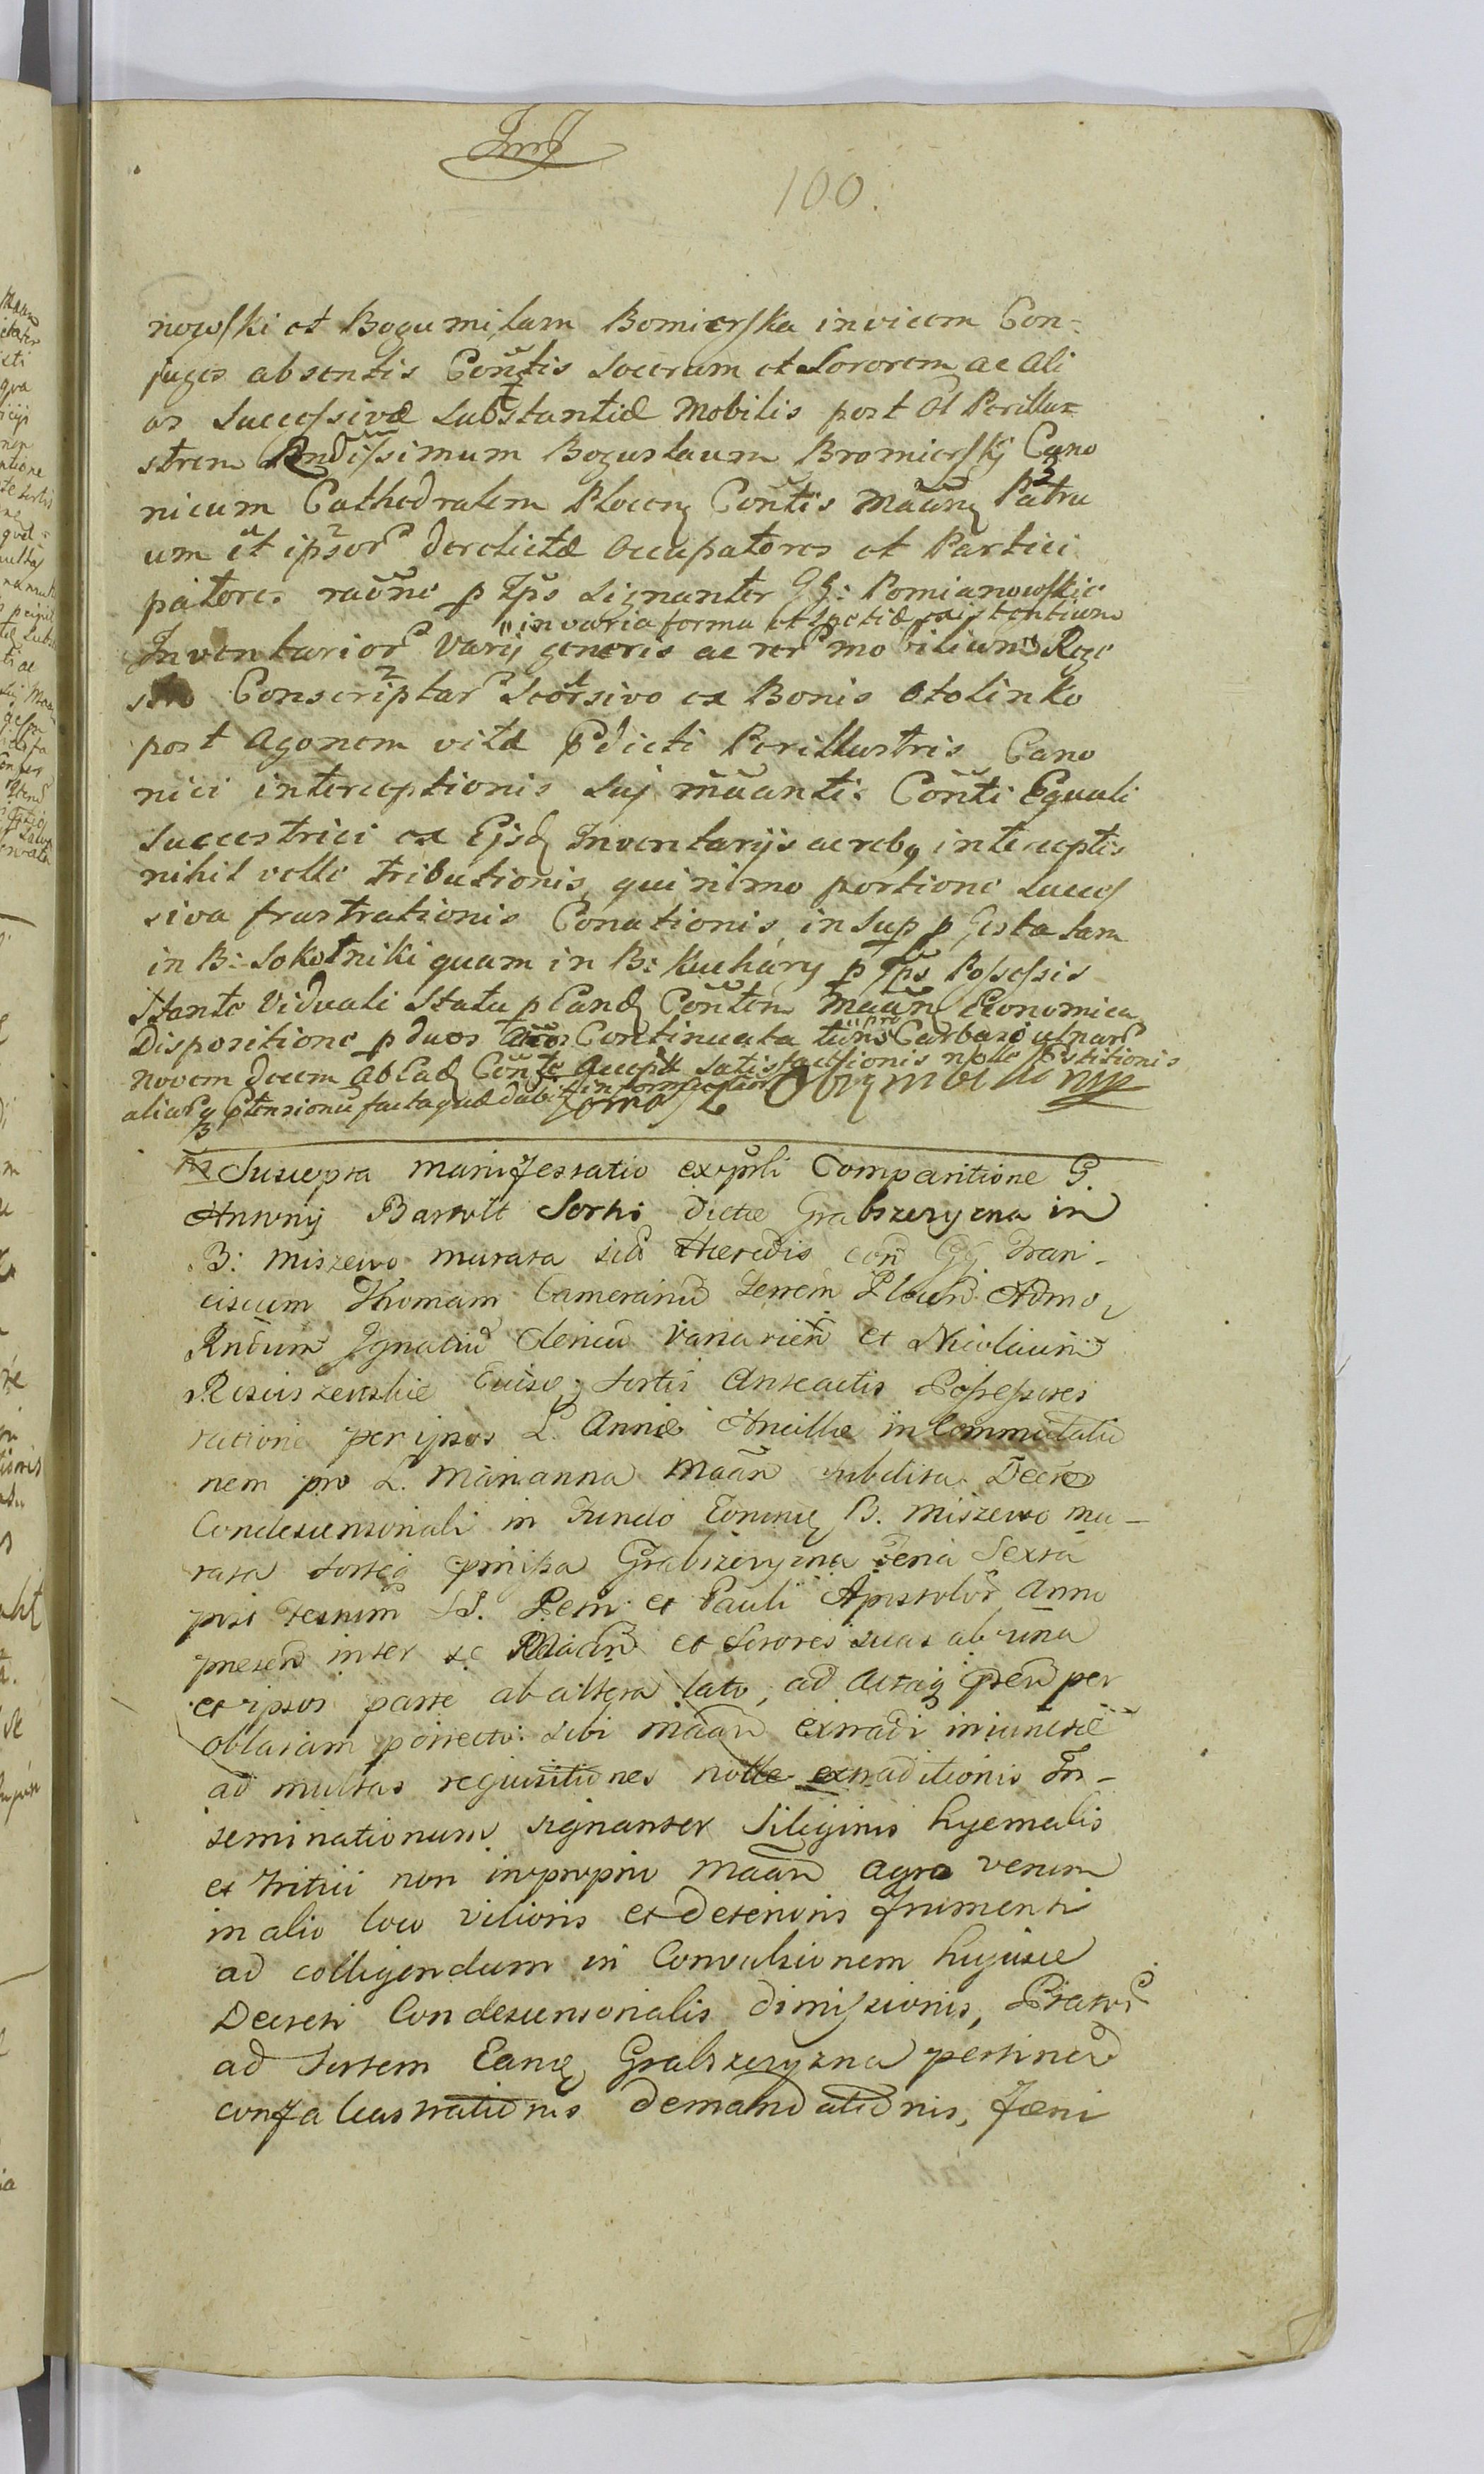 100.
nowski et Bogumilam Bomierska invicem Con-
juges absentis Contis Socerum et Sororem ac ali
os Successivæ Substantiæ Mobilis post Ol Perillu-
strem Rndissimum Boguslaum Bromierskj Cano
nicum Cathedralem Plocen Contis Maan Patru
um et ipsor derelictæ Occupatores et Partici
patores raõne p Ips Signanter GG: Pomianowskie
"in varia forma et spetiæ existentium
Inventarior Varij generis ac rer mobilium" Rege
stro Conscriptar Seorsivo ex Bonis Otolinko
post Agonem vitæ Pdicti Perillustris Cano
nici interceptionis Suj maanti: Conti Equali
Successtrici ex Ejsd Inventarijs ac rebq interceptis
nihil velle tributionis, quinimo portione Succes
siva frustrationis Conationis in Sup p Gesta tam
in B: Sokolniki quam in B: Kuchary p Ips Possessis
Stante Viduali Statu p Eand Conten Maan Economica
"pro
Dispositione p duos Continuata
novem decem ab Ead Conte Satisfactionis nolle Pstitionis
aliarq Ptensionu facta quæ dabit
Suscepta Manifestatio ex psli Comparitione G.
Antonij Bartolt Sortis dictæ Grabszczyzna in
B: Miszewo Murata sit Hæredis con GG Fran-
ciscum Thomam Camerarium Terren Plocen Admo
Rndum Ignatiu Clericu Varsavien et Nicolaum
Resciszewskie Ejusq Sortis Anteactis Possessores
ratione per ipsos L. Annæ Ancillæ in Commutatio
nem pro L. Marianna Maan Subdita Decreto
Condescensoriali in Fundo Eorumq B. Miszewo Mu-
rata Sorteq pmissa Grabszczyzna Feria Sexta
post Festum SS. Petri et Pauli Apostolor Anno
presen inter se Maan et Sorores suas ab una
et ipsos parte ab altera lato, ad Actaq psen per
oblatam porrecto sibi Maan extradi iniunctæ
ad multas requisitiones nolle extraditionis In-
seminationum signanter Siliginis hyemalis
et Tritici non in proprio Maan agro verum
in alio loco vilioris et deterioris frumenti
ad colligendum in Convulsionem hujusce
Decreti Condescensorialis dimissionis, Prator
ad Sortem Eamq Grabszczyzna pertinen
confalcastrationis demandationis, fæni